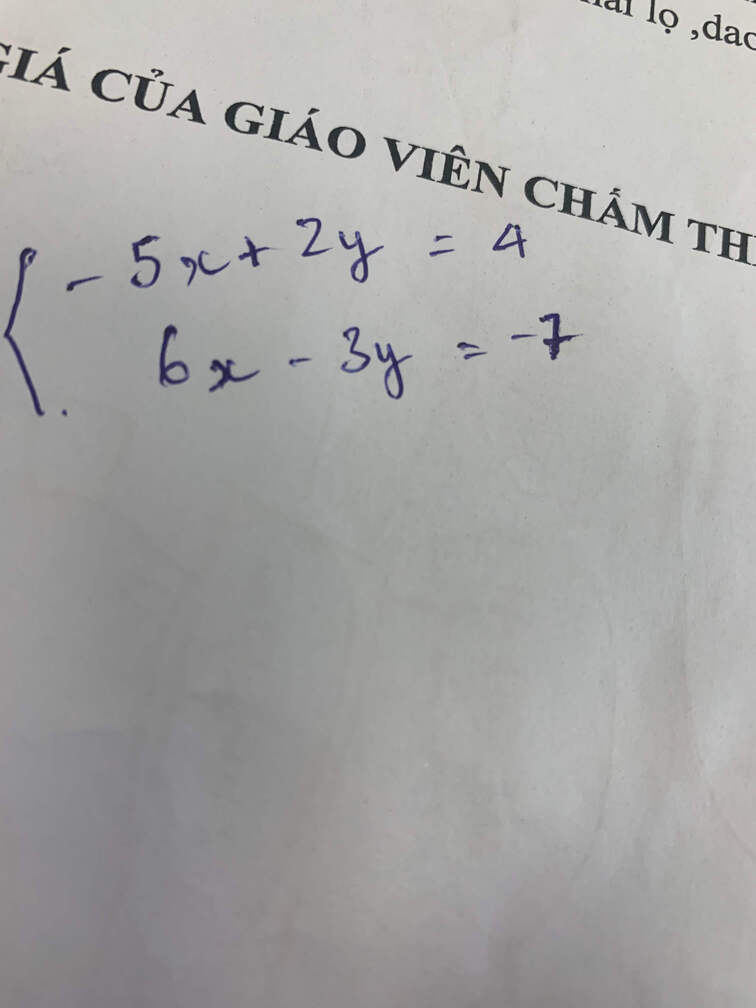 lọ ,dao
GIÁ CỦA GIÁO VIÊN CHẤM THI
- 5x + 2y = 4
6x - 3y = -7